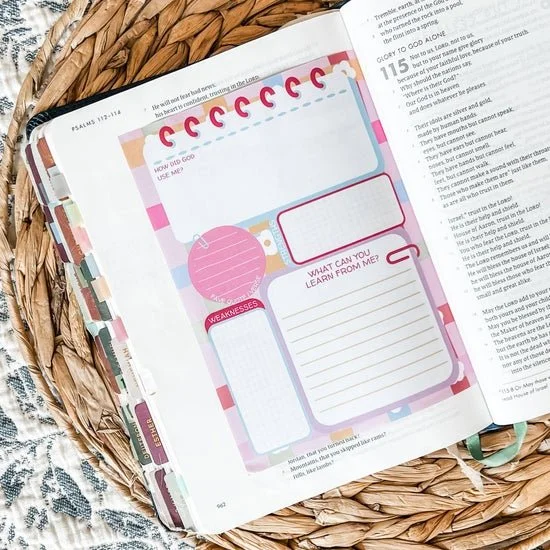 PSALMS 112-114
He will not fear bad news;
his heart is confident, trusting in the LORD.
HOW DID GOD
USE ME?
STRENGTHS
FAVE QUOTE/VERSE
WHAT CAN YOU
LEARN FROM ME?
WEAKNESSES
Jordan, that you turned back?
Mountains, that you skipped like rams?
Hills, like lambs?
962
ESTHER
Tremble, earth, at
at the presence of the God
who turned the rock into a pool,
the flint into a spring.
GLORY TO GOD ALONE
115 Not to us, LORD, not to us,
but to your name give glory
because of your faithful love, because of your truth.
Why should the nations say,
"Where is their God?"
Our God is in heaven
and does whatever he pleases.
Their idols are silver and gold,
made by human hands.
They have mouths but cannot speak,
eyes, but cannot see.
They have ears but cannot hear,
noses, but cannot smell.
They have hands but cannot feel,
feet, but cannot walk.
They cannot make a sound with their throats.
Those who make them are just like them,
as are all who trust in them.
Israel, trust in the LORD!
He is their help and shield.
House of Aaron, trust in the LORD!
He is their help and shield.
You who fear the LORD, trust in the
He is their help and shield.
The LORD remembers us and will
He will bless the house of Israel
He will bless the house of Aaron
he will bless those who fear
small and great alike.
May the LORD add to
both yours and your
May you be blessed by
the Maker of heaven
The heavens are the
but the earth he has
It is not the dead wh
nor any of those des
into the silence